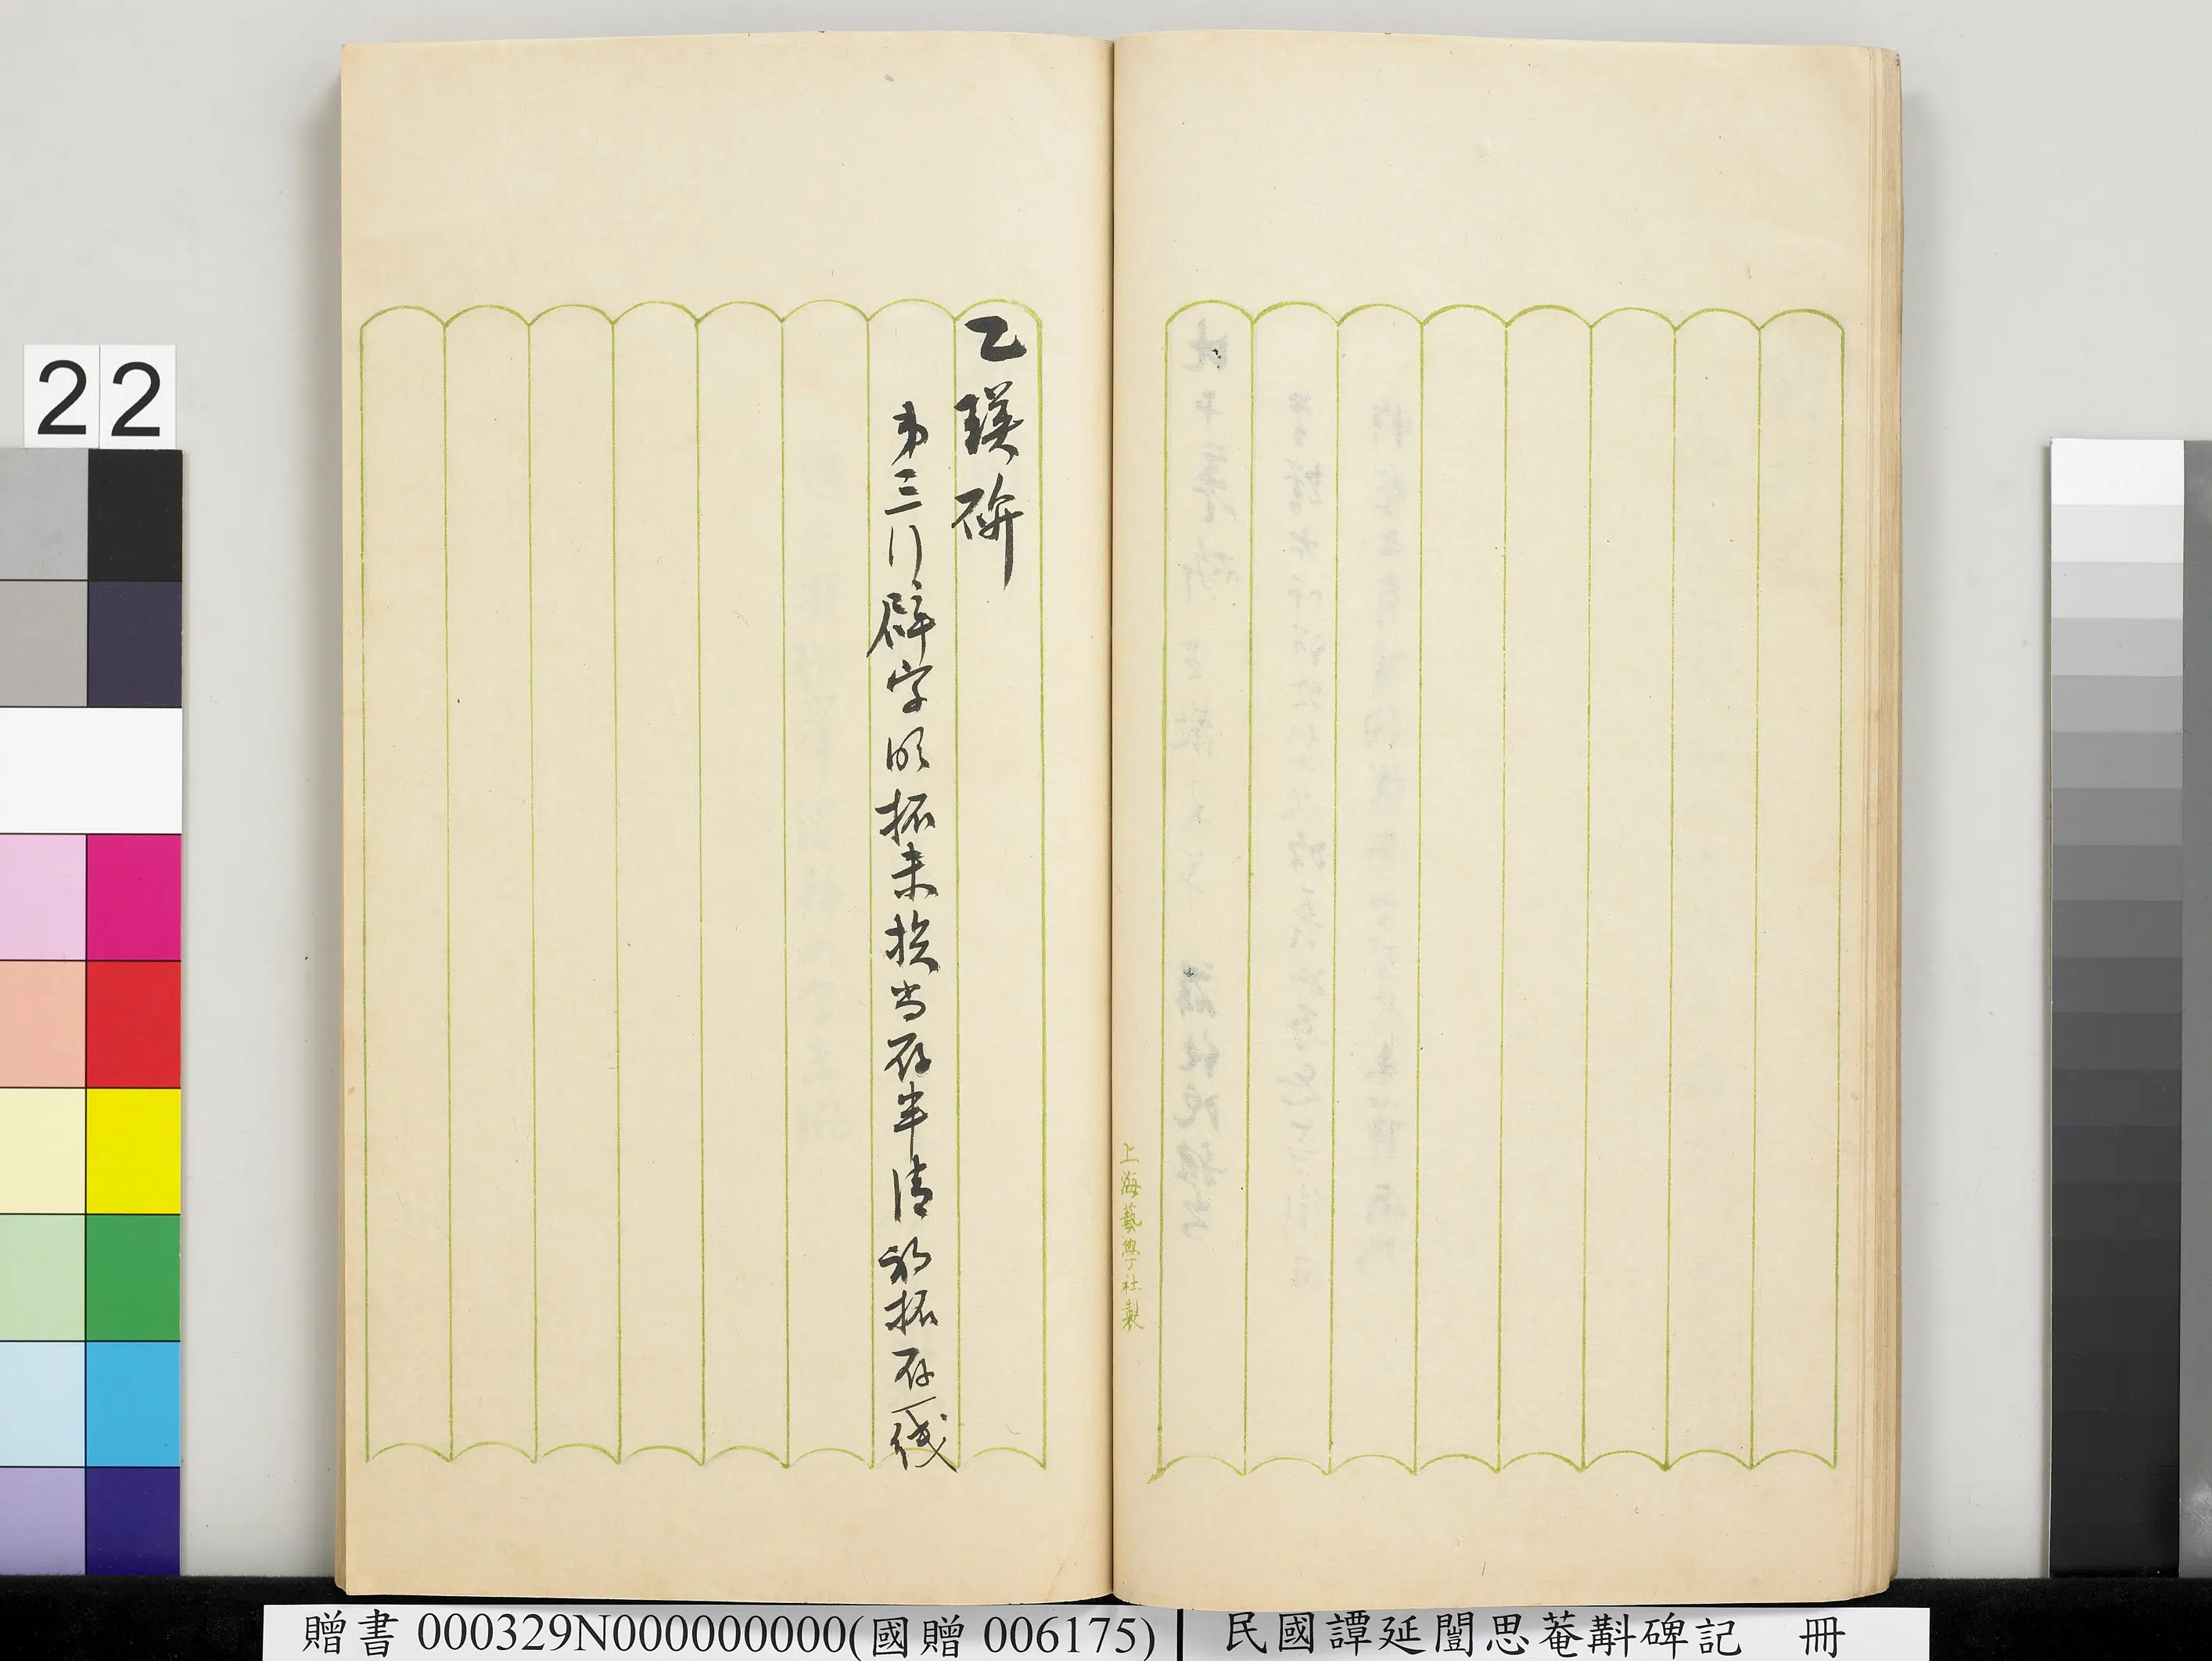 乙瑛碑
弟三行辟字明拓未損尚存半清初拓存一綫
上海藝學社製
22
贈書 000329N000000000(國贈 006175)
民國譚延闓思菴斠碑記 冊